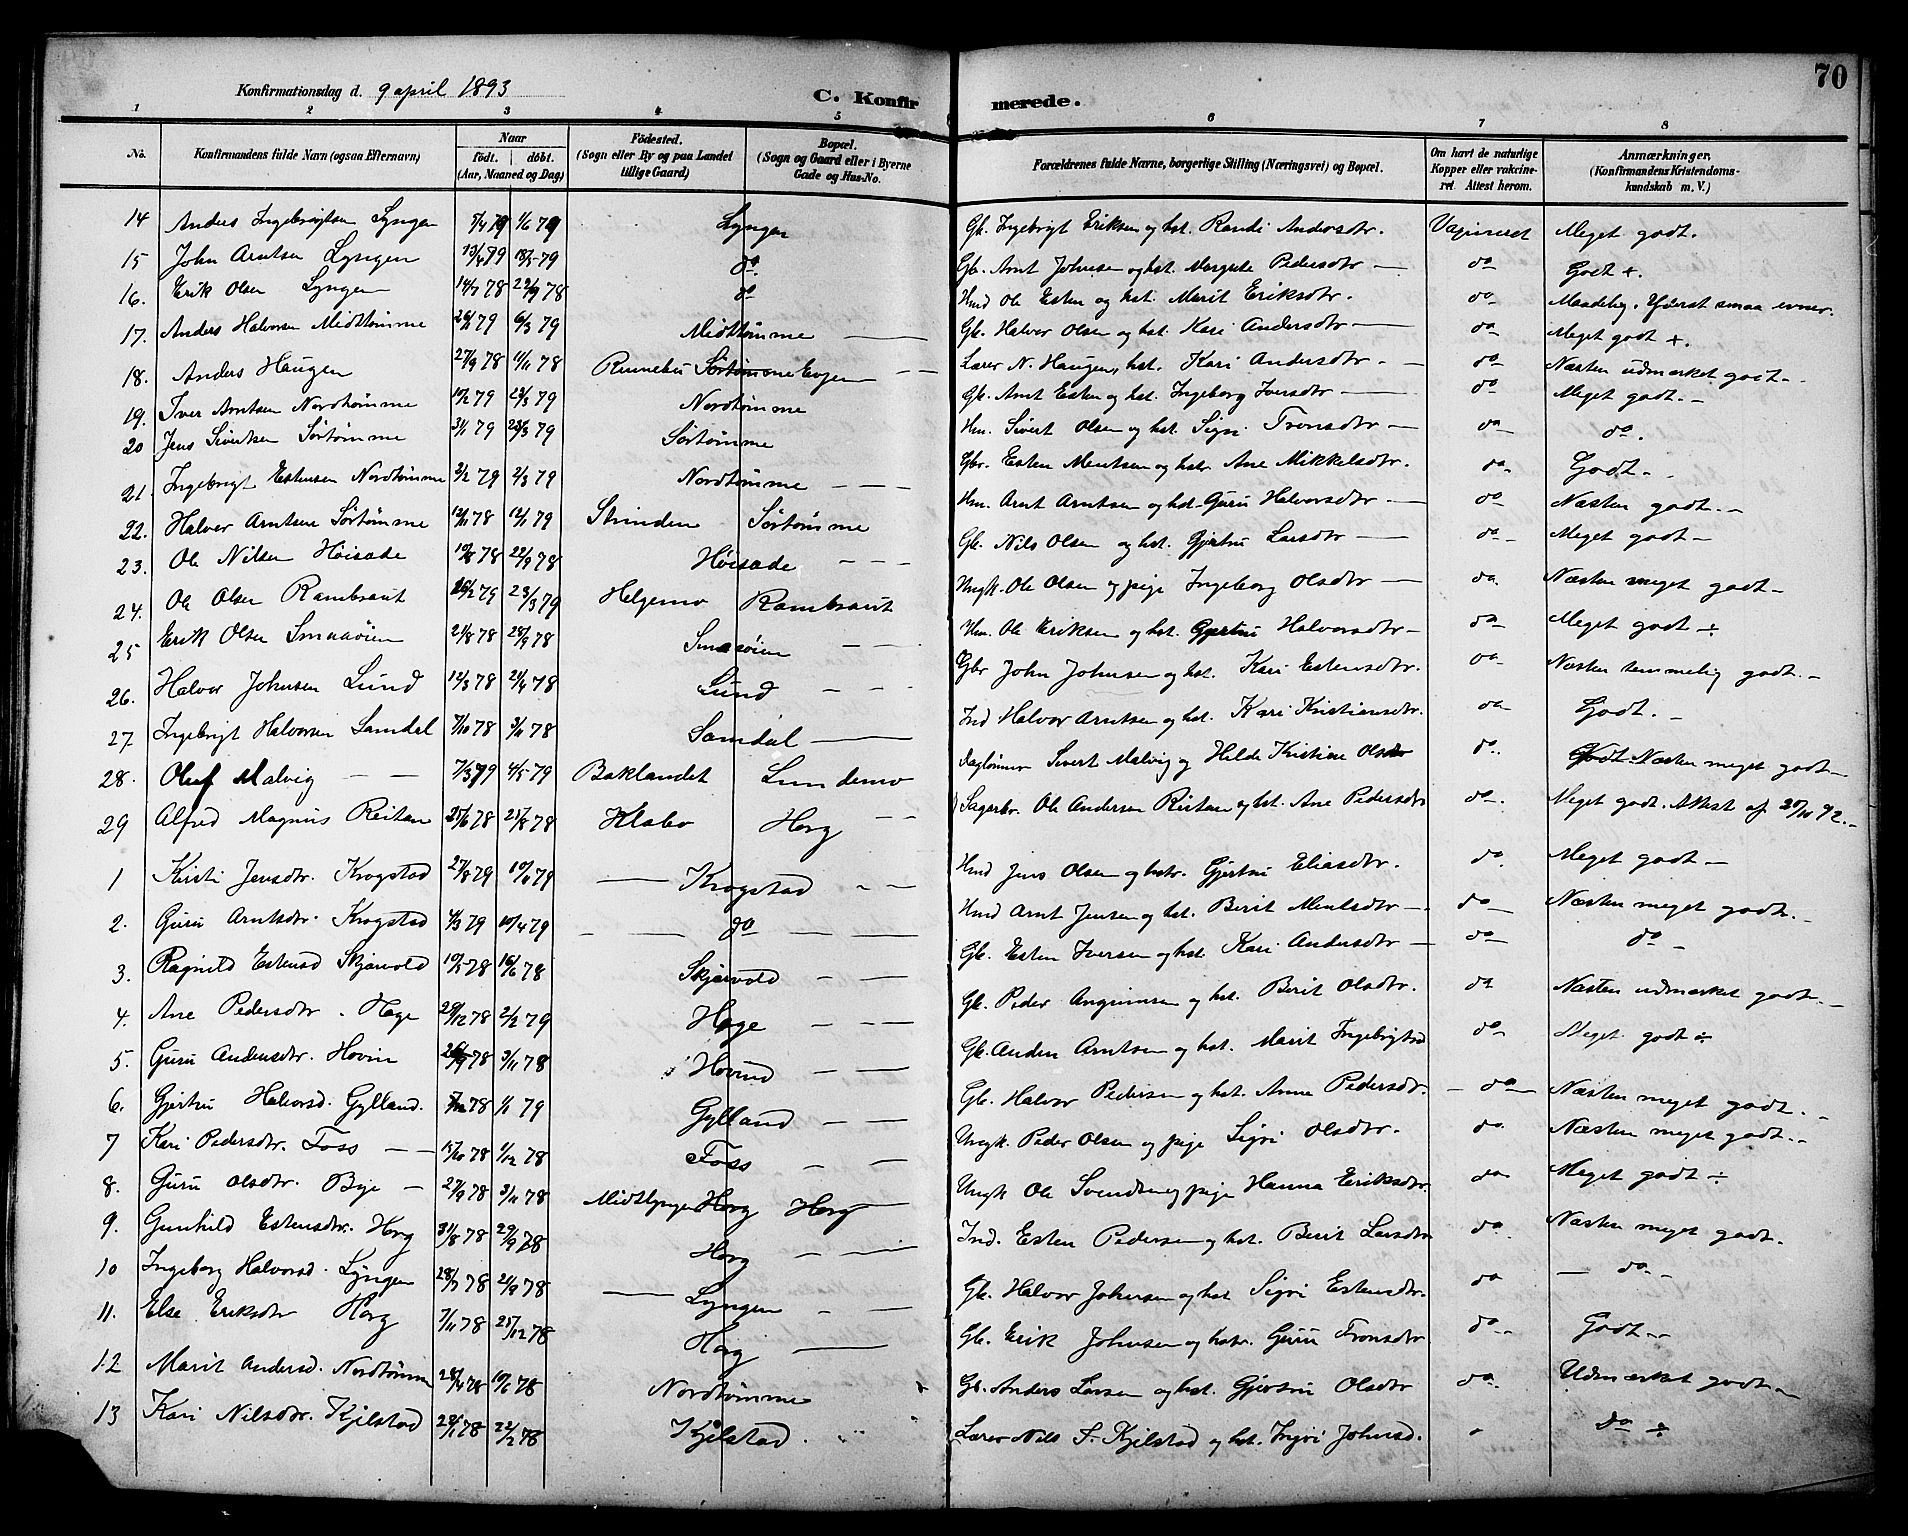 70
Konfirmationsdag d. 9 april 1893
C. Konfirmerede.
1 2 3 4 5 6 7 8
No. Konfirmandens fulde Navn (ogsaa Efternavn) Naar födt. döbt. (Aar, Maaned og Dag) Födested. (Sogn eller By og paa Landet tillige Gaard) Bopæl. (Sogn og Gaard eller i Byerne Gade og Hus-No. Forældrenes fulde Navne, borgerlige Stilling (Næringsvei) og Bopæl. Om havt de naturlige Kopper eller vakcineret. Attest herom. Anmærkninger. (Konfirmandens Kristendomskundskab m. V.)
14 Anders Ingebrigtsen Lyngen 5/4 79 1/6 79 Lyngen Gb. Ingebrigt Eriksen og hst. Randi Andersdtr. Vaxineret Meget godt.
15 John Arntsen Lyngen 13/4 79 18/5 79 do Gb. Arnt Johnsen og hst. Margrete Pedersdtr — do Godt +.
16. Erik Olsen Lyngen 14/7 78 22/9 78 do Hmd Ole Esten og hst. Marit Eriksdtr. do Maadelig. Yderst smaa evner.
17. Anders Halvorsen Midttømme 26/1 79 6/3 79 Midttømme — Gb. Halvor Olsen og hst. Kari Andersdtr — do Meget godt +.
18. Anders Haugen 27/9 78 11/11 78 Rennebu Sørtømme Evjen Lærer N. Haugen, hst. Kari Andersdtr — do Næsten udmærket godt.
19. Iver Arntsen Nordtømme 10/2 79 23/3 79 Nordtømme Gb. Arnt Esten og hst. Ingeborg Iversdtr — do Meget godt.
20 Jens Sivertsen Sørtømme 3/1 79 23/3 79 Sørtømme Hm. Sivert Olsen og hst. Sigri Tronsdtr — do do.
21. Ingebrigt Estensen Nordtømme 3/2 79 2/3 79 Nordtømme Gbr. Esten Mentsen og hstr. Ane Mikkelsdtr. do Godt.
22. Halvor Arntsen Sørtømme 12/11 78 12/1 79 Strinden Sørtømme Hm. Arnt Arntsen og hst. Guru Halvorsdtr — do Næsten godt.
23. Ole Nilsen Høisade 10/8 78 22/9 78 Høisade Gb. Nils Olsen og hst. Gjertru Larsdtr — do Meget godt
24. Ole Olsen Rambraut 26/2 79 23/3 79 Helgemo Rambraut Ungk. Ole Olsen og pige Ingeborg Olsdtr — do Næsten meget godt
25 Erik Olsen Smaaøien 21/8 78 28/9 78 Smaaøien Hm. Ole Eriksen og hst. Gjertru Halvorsdtr — do Meget godt ÷
26. Halvor Johnsen Lund 12/3 78 21/4 78 Lund Gbr John Johnsen og hst. Kari Estensdtr. do Næsten temmelig godt.
27. Ingebrigt Halvorsen Samdal 7/10 78 3/11 78 Samdal Ind Halvor Arntsen og hst. Kari Kristiansdtr. do Godt.
28. Oluf Malvig — — 7/3 79 4/5 79 Baklandet Lundemo Daglønner Sivert Malvig og Hilde Kristine Olsdtr do Godt. Næsten meget godt
29 Alfred Magnus Reitan 25/6 78 25/8 78 Klæbo Horg Sagarbr. Ole Andersen Reitan og hst. Ane Pedersdtr do Meget godt. Attest af 20/10 92.
1 Kirsti Jensdtr. Krogstad 27/8 79 10/11 79 — Krogstad Hmd Jens Olsen og hstr. Gjertru Eliasdtr. do Meget godt
2. Guru Arntsdtr. Krogstad 4/3 79 10/4 79 do Hmd Arnt Jensen og hst. Berit Mentsdtr — do Næsten meget godt.
3. Ragnild Estensd Skjærvold 10/5 78 16/6 78 Skjærvold Gb. Esten Iversen og hst. Kari Andersdtr — do do
4. Ane Pedersdtr. Hage 29/12 78 2/2 79 Hage Gb. Peder Angrimsen og hst. Berit Olsdtr. do Næsten udmærket godt.
5. Guru Andersdtr. Hovin 26/9 78 3/11 78 Hovind Gb. Anders Arntsen og hst. Marit Ingebrigtsd do Meget godt ÷
6. Gjertru Halvorsd. Gylland. 7/12 78 1/1 79 Gylland Gb. Halvor Pedersen og hst. Anne Pedersdtr. do Næsten meget godt.
7 Kari Pedersdtr. Foss 15/10 78 1/12 78 Foss Ungk. Peder Olsen og pige Sigri Olsdtr. do Næsten meget godt.
8. Guru Olsdtr. Bye 27/9 78 3/11 78 Midtlyngen Horg Horg Ungk Ole Svendsen og pige Hanna Eriksdtr. do Meget godt ÷
9. Gunhild Estensdtr. Horg 31/8 78 29/9 78 Horg Ind. Esten Pedersen og hst. Berit Larsdtr do Næsten meget godt.
10 Ingeborg Halvorsd. Lyngen 28/7 78 2/9 78 Lyngen Gb. Halvor Johnsen og hst. Sigri Estensdtr. do do
11. Else Eriksdtr Horg 7/11 78 25/12 78 Horg Gb. Erik Johnsen og hstr. Guru Tronsdtr do Godt
12 Marit Andersd. Nordtømm 28/4 78 10/6 78 Nordtømme Gb. Anders Larsen og hst. Gjertru Olsdtr do Udmærket godt
13 Kari Nilsdtr. Kjelstad 28/1 78 22/2 78 Kjelstad. Lærer Nils S. Kjelstad og hst. Ingri Johnsd. do ÷